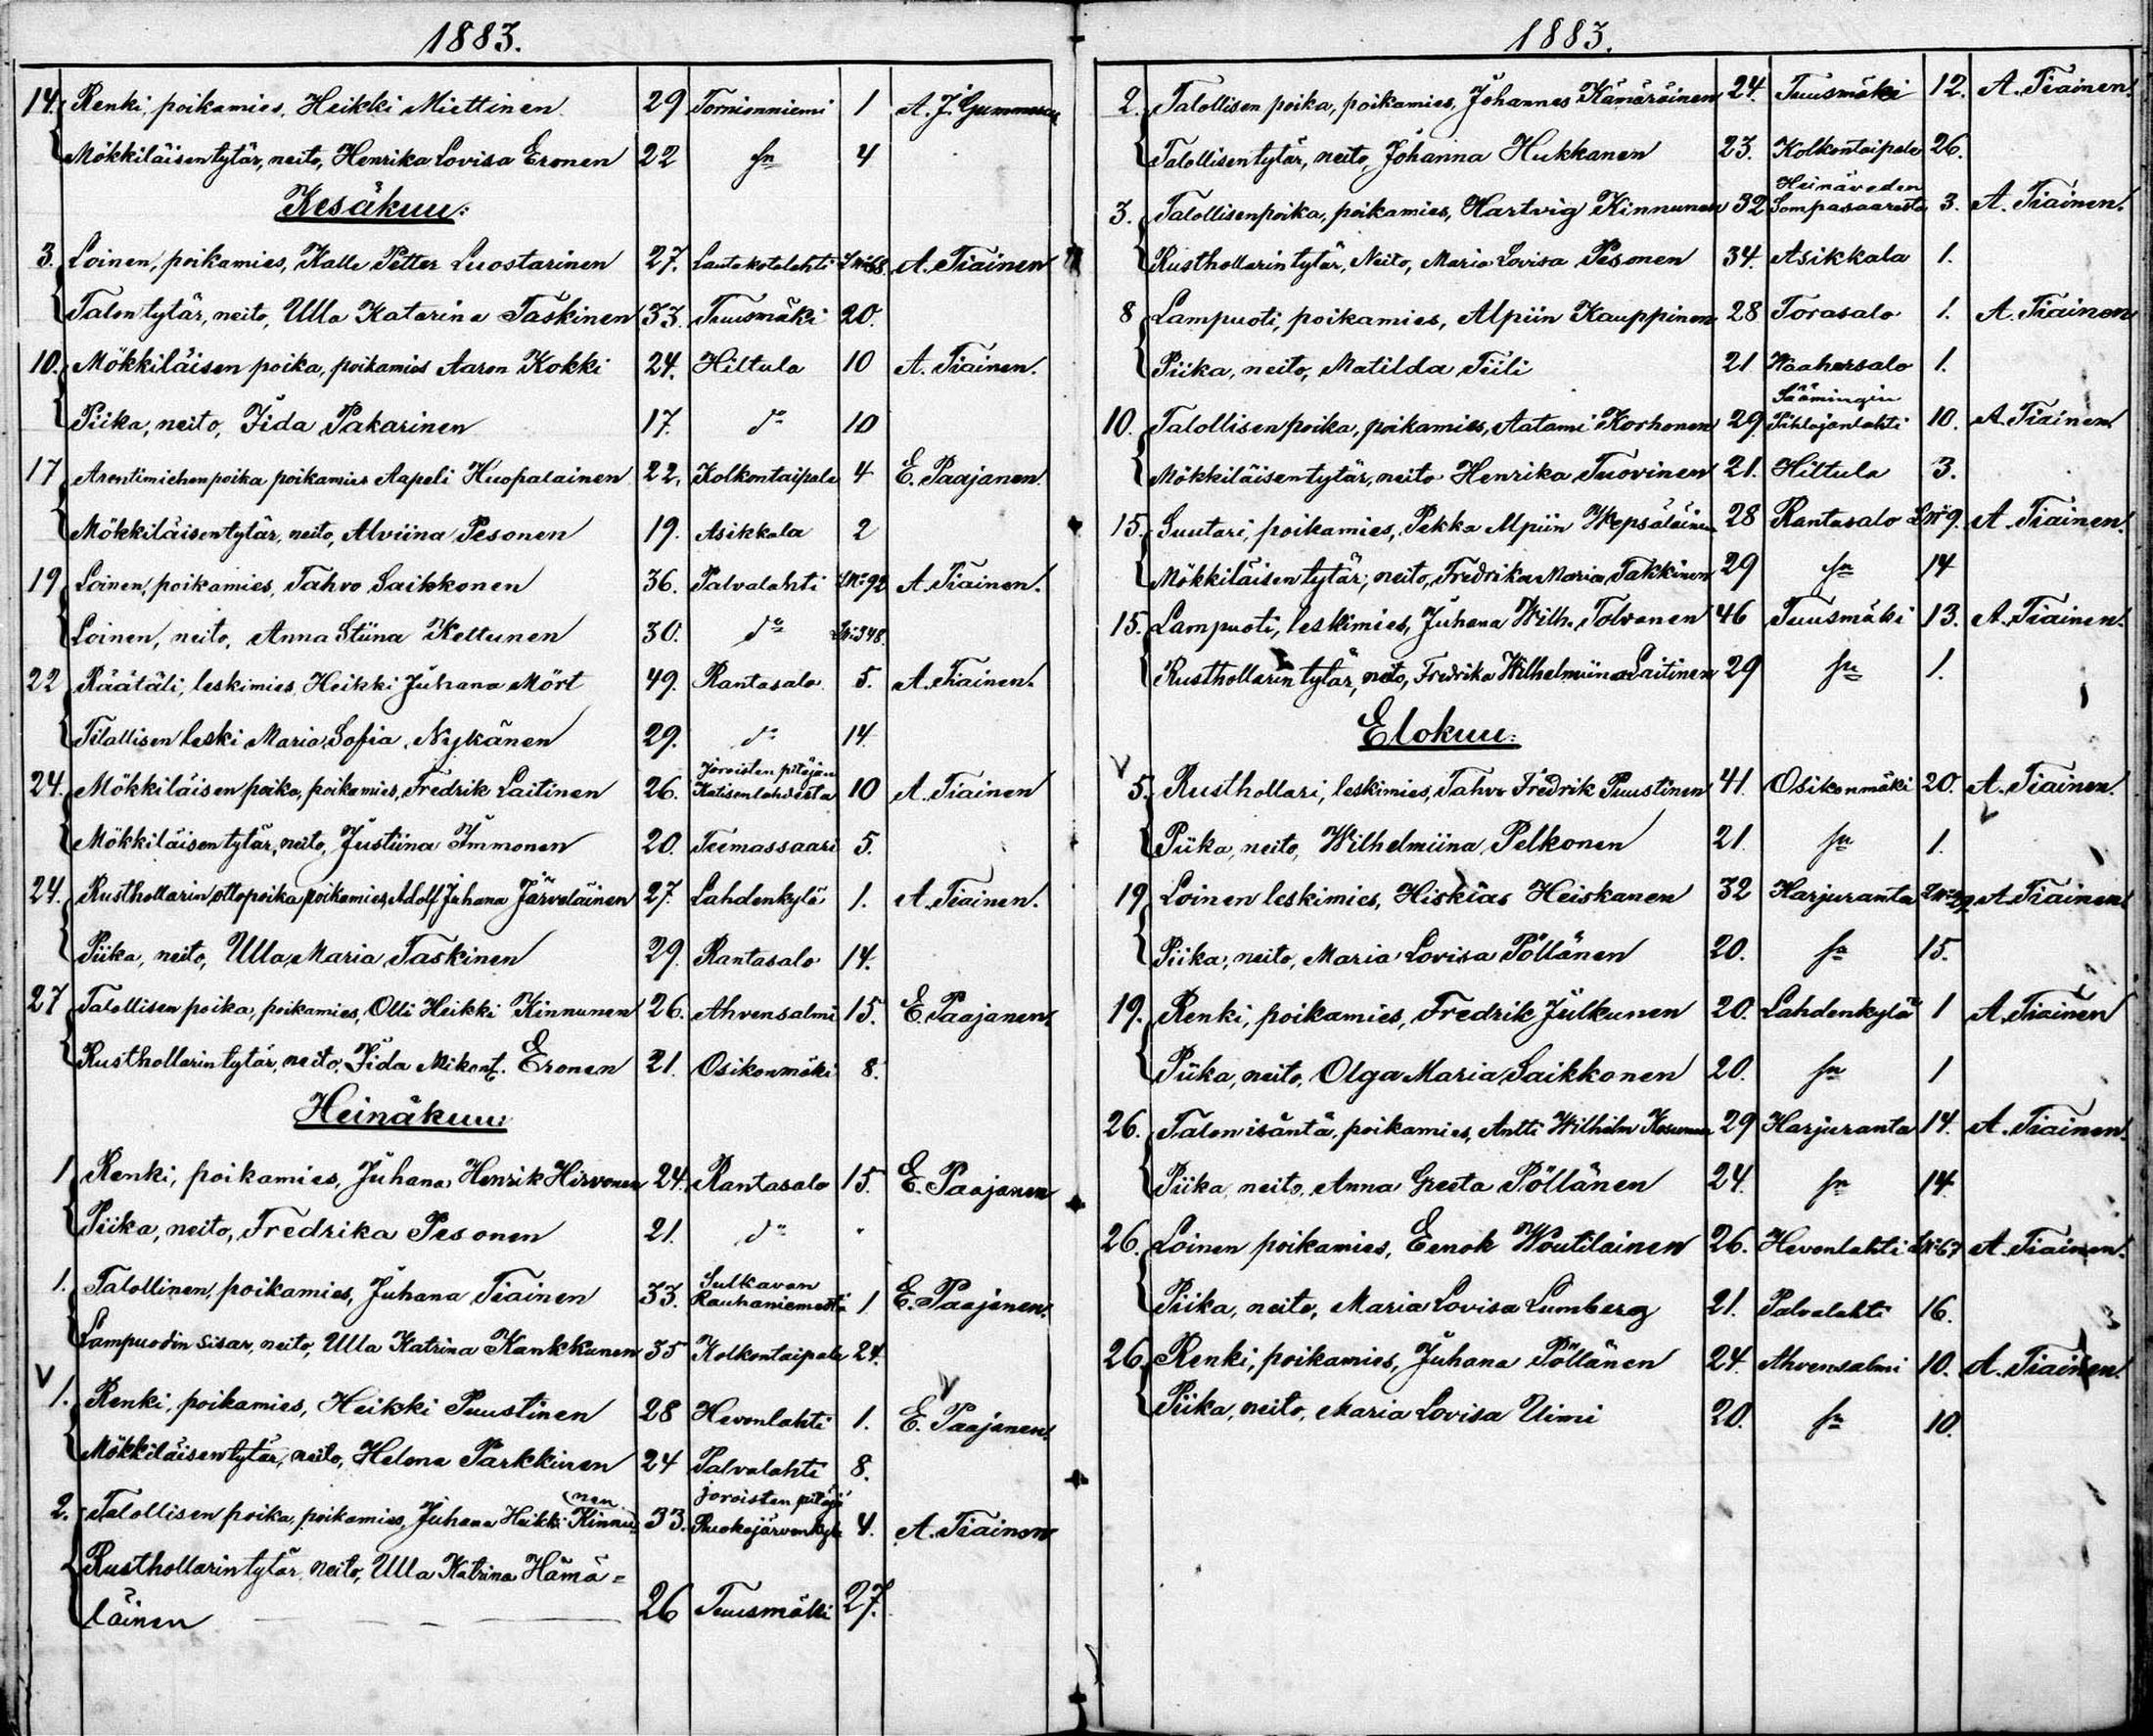 1883.
14. Renki, poikamies, Heikki Miettinen 29 Tornionniemi 1 A. J. Gummerus
Mökkiläisen tytär, neito, Henrika Lovisa Eronen 22 sn 4
Kesäkuu:
3. Loinen, poikamies, Kalle Petter Luostarinen 27. Lautakotalahti 68. A. Tiainen
Talon tytär, neito, Ulla Katarina Taskinen 33. Tuusmäki 20.
10. Mökkiläisen poika, poikamies Aaron Kokki 24. Hiltula 10 A. Tiainen.
Piika, neito, Iida Pakarinen 17. do 10
17 Arentimiehen poika poikamies Aapeli Huopalainen 22. Kolkontaipale 4 E. Paajanen.
Mökkiläisen tytär, neito, Alviina Pesonen 19. Asikkala 2
19 Loinen, poikamies, Tahvo Saikkonen 36. Palvalahti LNo 92 A. Tiainen.
Loinen, neito, Anna Stiina Kettunen 30. do LNo 348.
22 Räätäli, leskimies, Heikki Juhana Mört 49. Rantasalo 5. A. Tiainen.
Tilallisen leski Maria Sofia Nykänen 29. do 14.
24. Mökkiläisen poika, poikamies, Fredrik Laitinen 26. Joroisten pitäjän Katisenlahdesta 10 A. Tiainen
Mökkiläisen tytär, neito, Justiina Immonen 20. Teemassaari 5.
24. Rusthollarin ottopoika poikamies, Adolf Juhana Järveläinen 27. Lahdenkylä 1. A. Tiainen.
Piika, neito, Ulla Maria Taskinen 29. Rantasalo 14.
27 Talollisen poika, poikamies, Olli Heikki Kinnunen 26. Ahvensalmi 15. E. Paajanen.
Rusthollarin tytär, neito, Iida Mikont. Eronen 21. Osikonmäki 8.
Heinäkuu:
1 Renki, poikamies, Juhana Henrik Hirvonen 24. Rantasalo 15. E. Paajanen
Piika, neito, Fredrika Pesonen 21. do "
1. Talollinen, poikamies, Juhana Tiainen 33. Sulkavan Rauhaniemestä 1 E. Paajanen.
Lampuodin sisar, neito, Ulla Katrina Kankkunen 35 Kolkontaipale 24.
V
1. Renki, poikamies, Heikki Puustinen 28 Hevonlahti 1. E. Paajanen.
Mökkiläisen tytär, neito, Helena Parkkinen 24 Palvalahti 8.
2. Talollisen poika, poikamies, Juhana Heikki Kinnunen 33. Joroisten pitäjä Ruokojärvenkylä 4. A. Tiainen
Rusthollarin tytär, neito, Ulla Katrina Hämä=
läinen 26 Tuusmäki 27.
1883.
2. Talollisen poika, poikamies, Johannes Hämäräinen 24. Tuusmäki 12. A. Tiainen.
Talollisen tytär, neito, Johanna Hukkanen 23. Kolkontaipale 26.
3. Talollisen poika, poikamies, Hartvig Kinnunen 32 Heinäveden Sompasaaresta 3. A. Tiainen.
Rusthollarin tytär, Neito, Maria Lovisa Pesonen 34. Asikkala 1.
8 Lampuoti, poikamies, Alpiin Kauppinen 28 Torasalo 1. A. Tiainen
Piika, neito, Matilda Tiili 21 Waahersalo 1.
10. Talollisen poika, poikamies, Aatami Korhonen 29. Säämingin Pihlajanlahti 10. A. Tiainen
Mökkiläisen tytär, neito Henrika Tuovinen 21. Hiltula 3.
15. Suutari, poikamies, Pekka Alpiin Wepsäläinen 28 Rantasalo LNo 9. A. Tiainen.
Mökkiläisen tytär, neito, Fredrika Maria Takkinen 29 sn 14
15. Lampuoti, leskimies, Juhana Wilh. Tolvanen 46 Tuusmäki 13. A. Tiainen.
Rusthollarin tytär, neito, Fredrika Wilhelmiina Laitinen 29 sn 1.
Elokuu:
V
5. Rusthollari, leskimies, Tahvo Fredrik Puustinen 41. Osikonmäki 20. A. Tiainen.
Piika, neito, Wilhelmiina Pelkonen 21. sn 1.
19 Loinen leskimies, Hiskias Heiskanen 32 Harjuranta A. Tiainen
Piika, neito, Maria Lovisa Pöllänen 20. sn 15.
19. Renki, poikamies, Fredrik Julkunen 20. Lahdenkylä 1 A. Tiainen
Piika, neito, Olga Maria Saikkonen 20. sn 1
26. Talon isäntä, poikamies, Antti Wilhelm Kosunen 29 Harjuranta 14. A. Tiainen.
Piika, neito, Anna Greeta Pöllänen 24. sn 14
26. Loinen poikamies, Eenok Woutilainen 26. Hevonlahti LNo 67 A. Tiainen.
Piika, neito, Maria Lovisa Lumberg 21. Palvalahti 16.
26. Renki, poikamies, Juhana Pöllänen 24. Ahvensalmi 10. A. Tiainen.
Piika, neito, Maria Lovisa Uimi 20. sn 10.